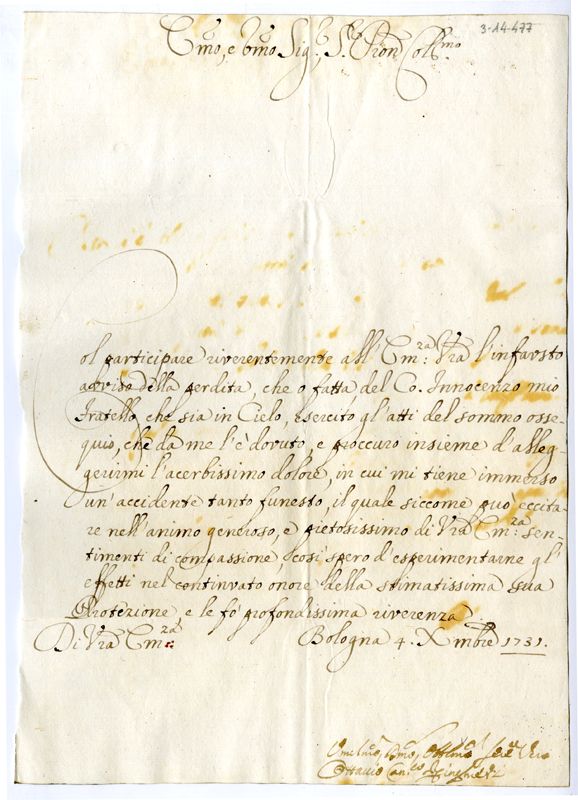 3-14-477
Em̃o, e Rm̃o Sig.r, S.r Pron Coll.mo
Col participare riverentemente all'Em.za Vr̃a l'infausto
avviso della perdita, che ò fatta, del Co. Innocenzo mio
Fratello, che sia in Cielo, esercito gl'atti del sommo osse-
quio, che da me l'è dovuto, e proccuro insieme d'alleg-
gerirmi l'acerbissimo dolore, in cui mi tiene immerso
un'accidente tanto funesto, il quale siccome può eccita-
re nell'animo generoso, e pietosissimo di Vr̃a Em.za sen-
timenti di compassione, così spero d'esperimentarne gl'
effetti nel continuato onore della stimatissima sua
Protezione e le fò profondissima riverenza
Di Vr̃a Em.za
Bologna 4. Xmbre 1731.
Ottavio Can.co